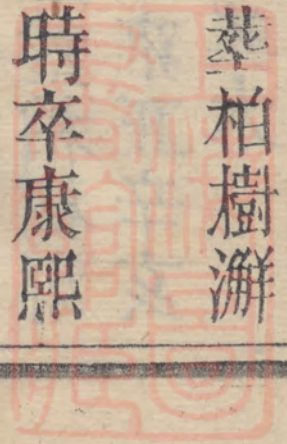 葬柏樹澥
時卒康熙